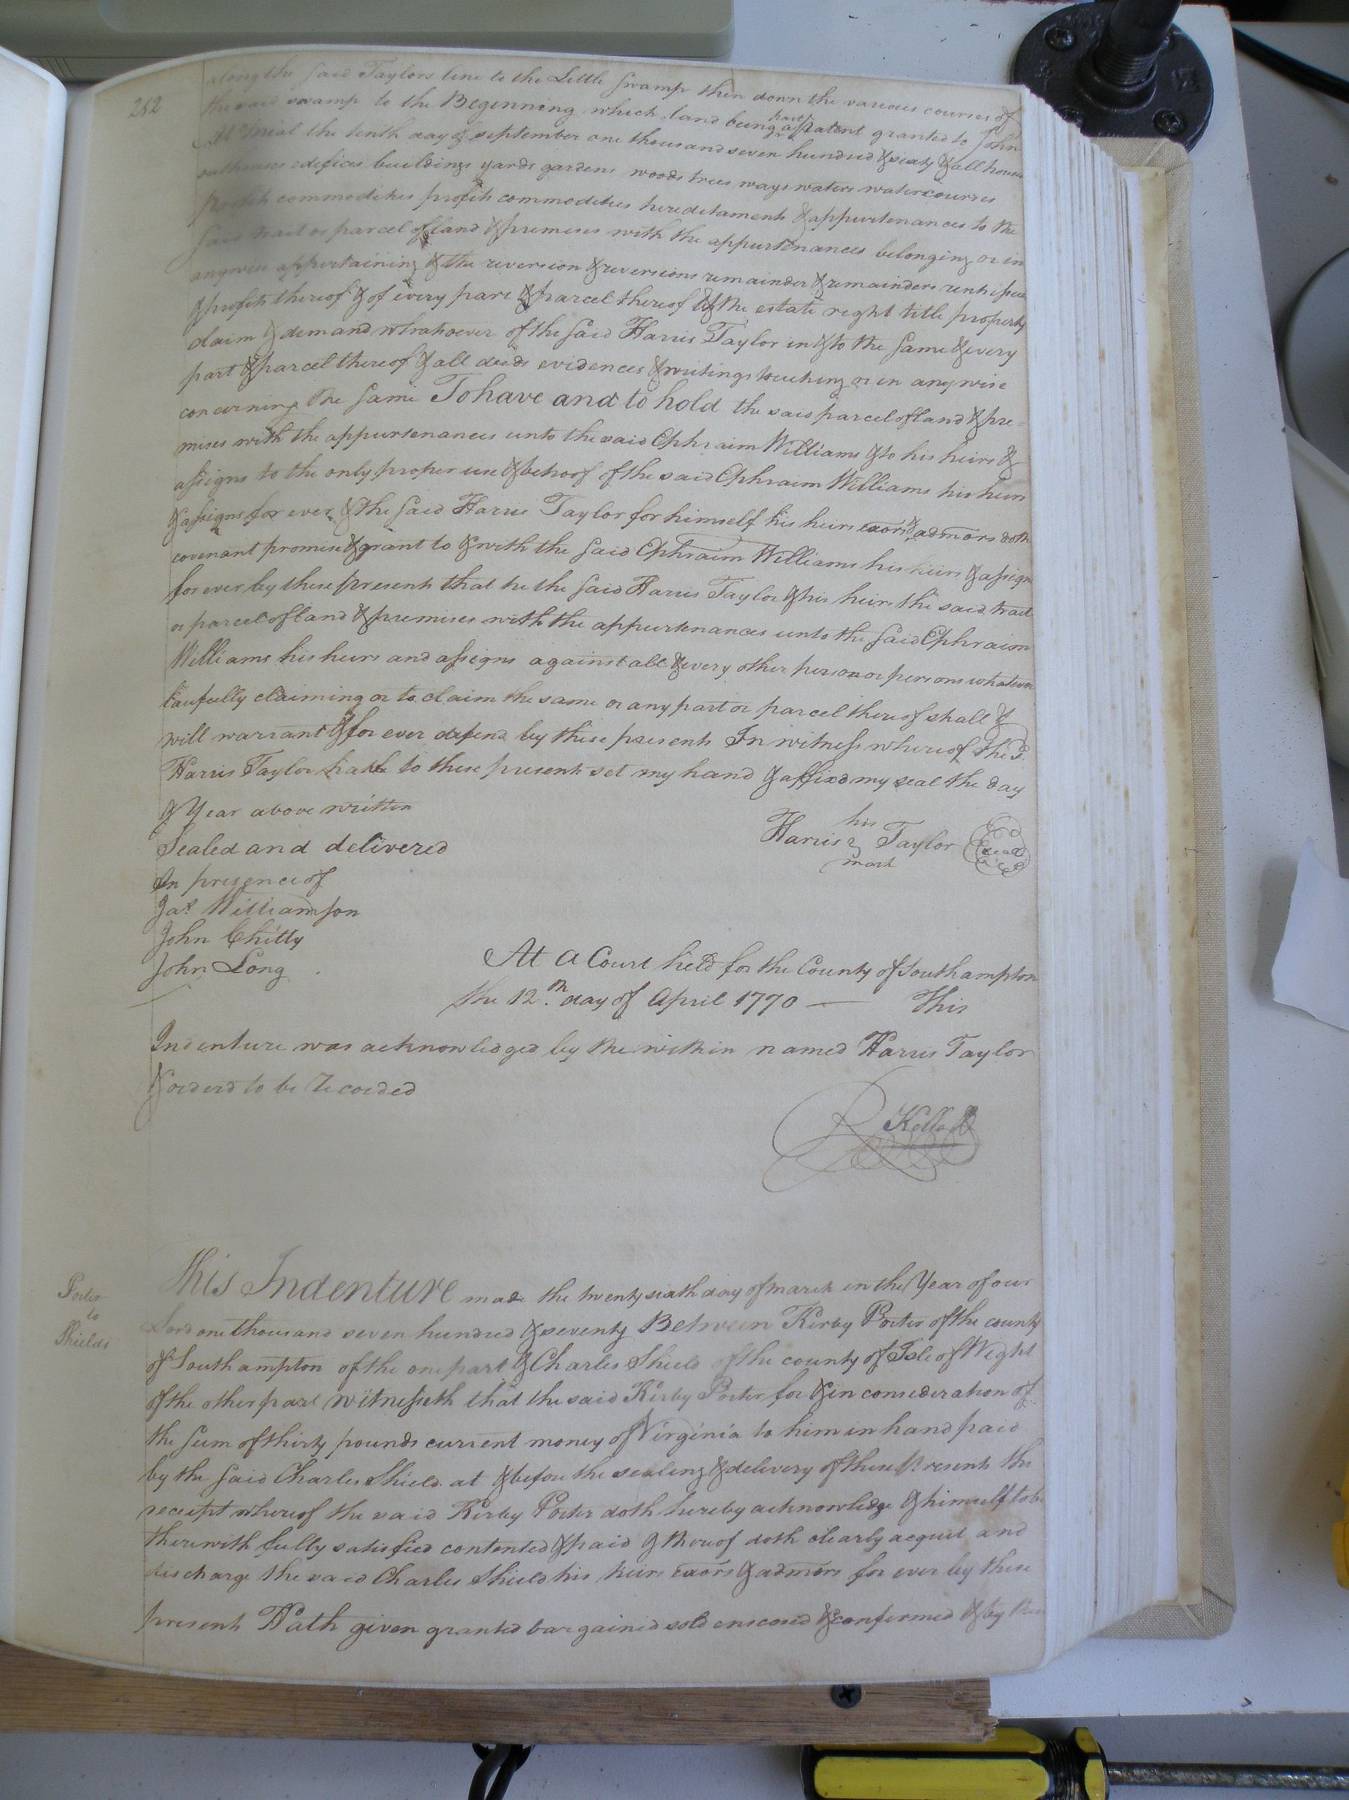 252
along the said Taylors line to the Little Swamp then down the various courses of
the said swamp to the Beginning which land being part of a Patent granted to John
the tenth day of september one thousand seven hundred & sixty & all houses
outhouses edifices buildings yards gardens woods trees ways waters watercourses
profits commodities profits commodities hereditaments & appurtenances to the
said tract or parcel of land & premises with the appurtenances belonging or in
anywise appertaining & the reversion & reversions remainder & remainders rents issues
& profits thereof & of every part & parcel thereof & the estate right title property
claim & demand whatsoever of the said Harris Taylor in & to the same & every
part & parcel thereof & all deeds evidences & writings touching or in any wise
concerning the same To have and to hold the said parcel of land & pre-
mises with the appurtenances unto the said Ephraim Williams & to his heirs &
assigns to the only proper use & behoof of the said Ephraim Williams his heirs
& assigns for ever & the said Harris Taylor for himself his heirs exors & admors doth
covenant promise & grant to & with the said Ephraim Williams his heirs & assigns
for ever by these present that he the said Harris Taylor & his heirs the said tract
or parcel of land & premises with the appurtenances unto the said Ephraim
Williams his heirs and assigns against all & every other person or persons whatever
Lawfully claiming or to claim the same or any part or parcel thereof shall &
will warrant & for ever defend by these presents In witness whereof I the sd.
Harris Taylor hath to these present set my hand & affixd my seal the day
& Year above written
Sealed and delivered
In presence of
Jas. Williamson
John Chitty
John Long
his
Harris Taylor Seal
mark
At a Court held for the County of Southampton
the 12.th day of April 1770 — This
Indenture was acknowledged by the within named Harris Taylor
& orderd to be Recorded
R Kello
Porter
to
Shields
This Indenture made the twenty sixth day of march in the Year of our
Lord one thousand seven hundred & seventy Between Kirby Porter of the county
of Southampton of the one part & Charles Shield of the county of Isle of Wight
of the other part Witnesseth that the said Kirby Porter for & in consideration of
the sum of thirty pounds current money of Virginia to him in hand paid
by the said Charles Shield at & before the sealing & delivery of these Presents the
receipt whereof the said Kirby Porter doth hereby acknowledge & himself to be
therewith fully satisfied contented & paid & thereof doth clearly acquit and
discharge the said Charles Shield his heirs exors & admors for ever by these
present Hath given granted bargained sold & confirmed & by these